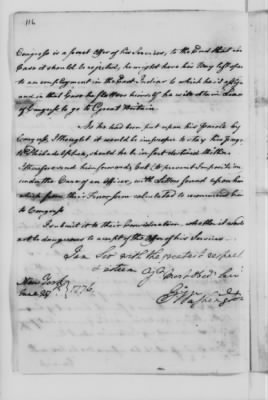 116
Congress is a proat offer of his Services, to the End that in
Case it should be rejected, he might have his Way left open
to an employment in the East Indies to which he is assign'd
and in that Case he flatters himself he will obtain Leave
of Congress to go to Great Britain.
As he had been put upon his Parole by
Congress, I thought it would be improper to stay his progress
to Philadelphia, should he be in fact destined thither.
I therefore sent him forward, but (to prevent Imposition)
under the Care of an Officer, with Letters found upon him
which from their Tenor seem calculated to recommend him
to Congress
I submit it to their Consideration, whether it would
not be dangerous to accept the Offer of his Services.
I am Sir with the greatest respect
& esteem Yr Most Obedt Servt
New York
June 27th 1776
Go Washington